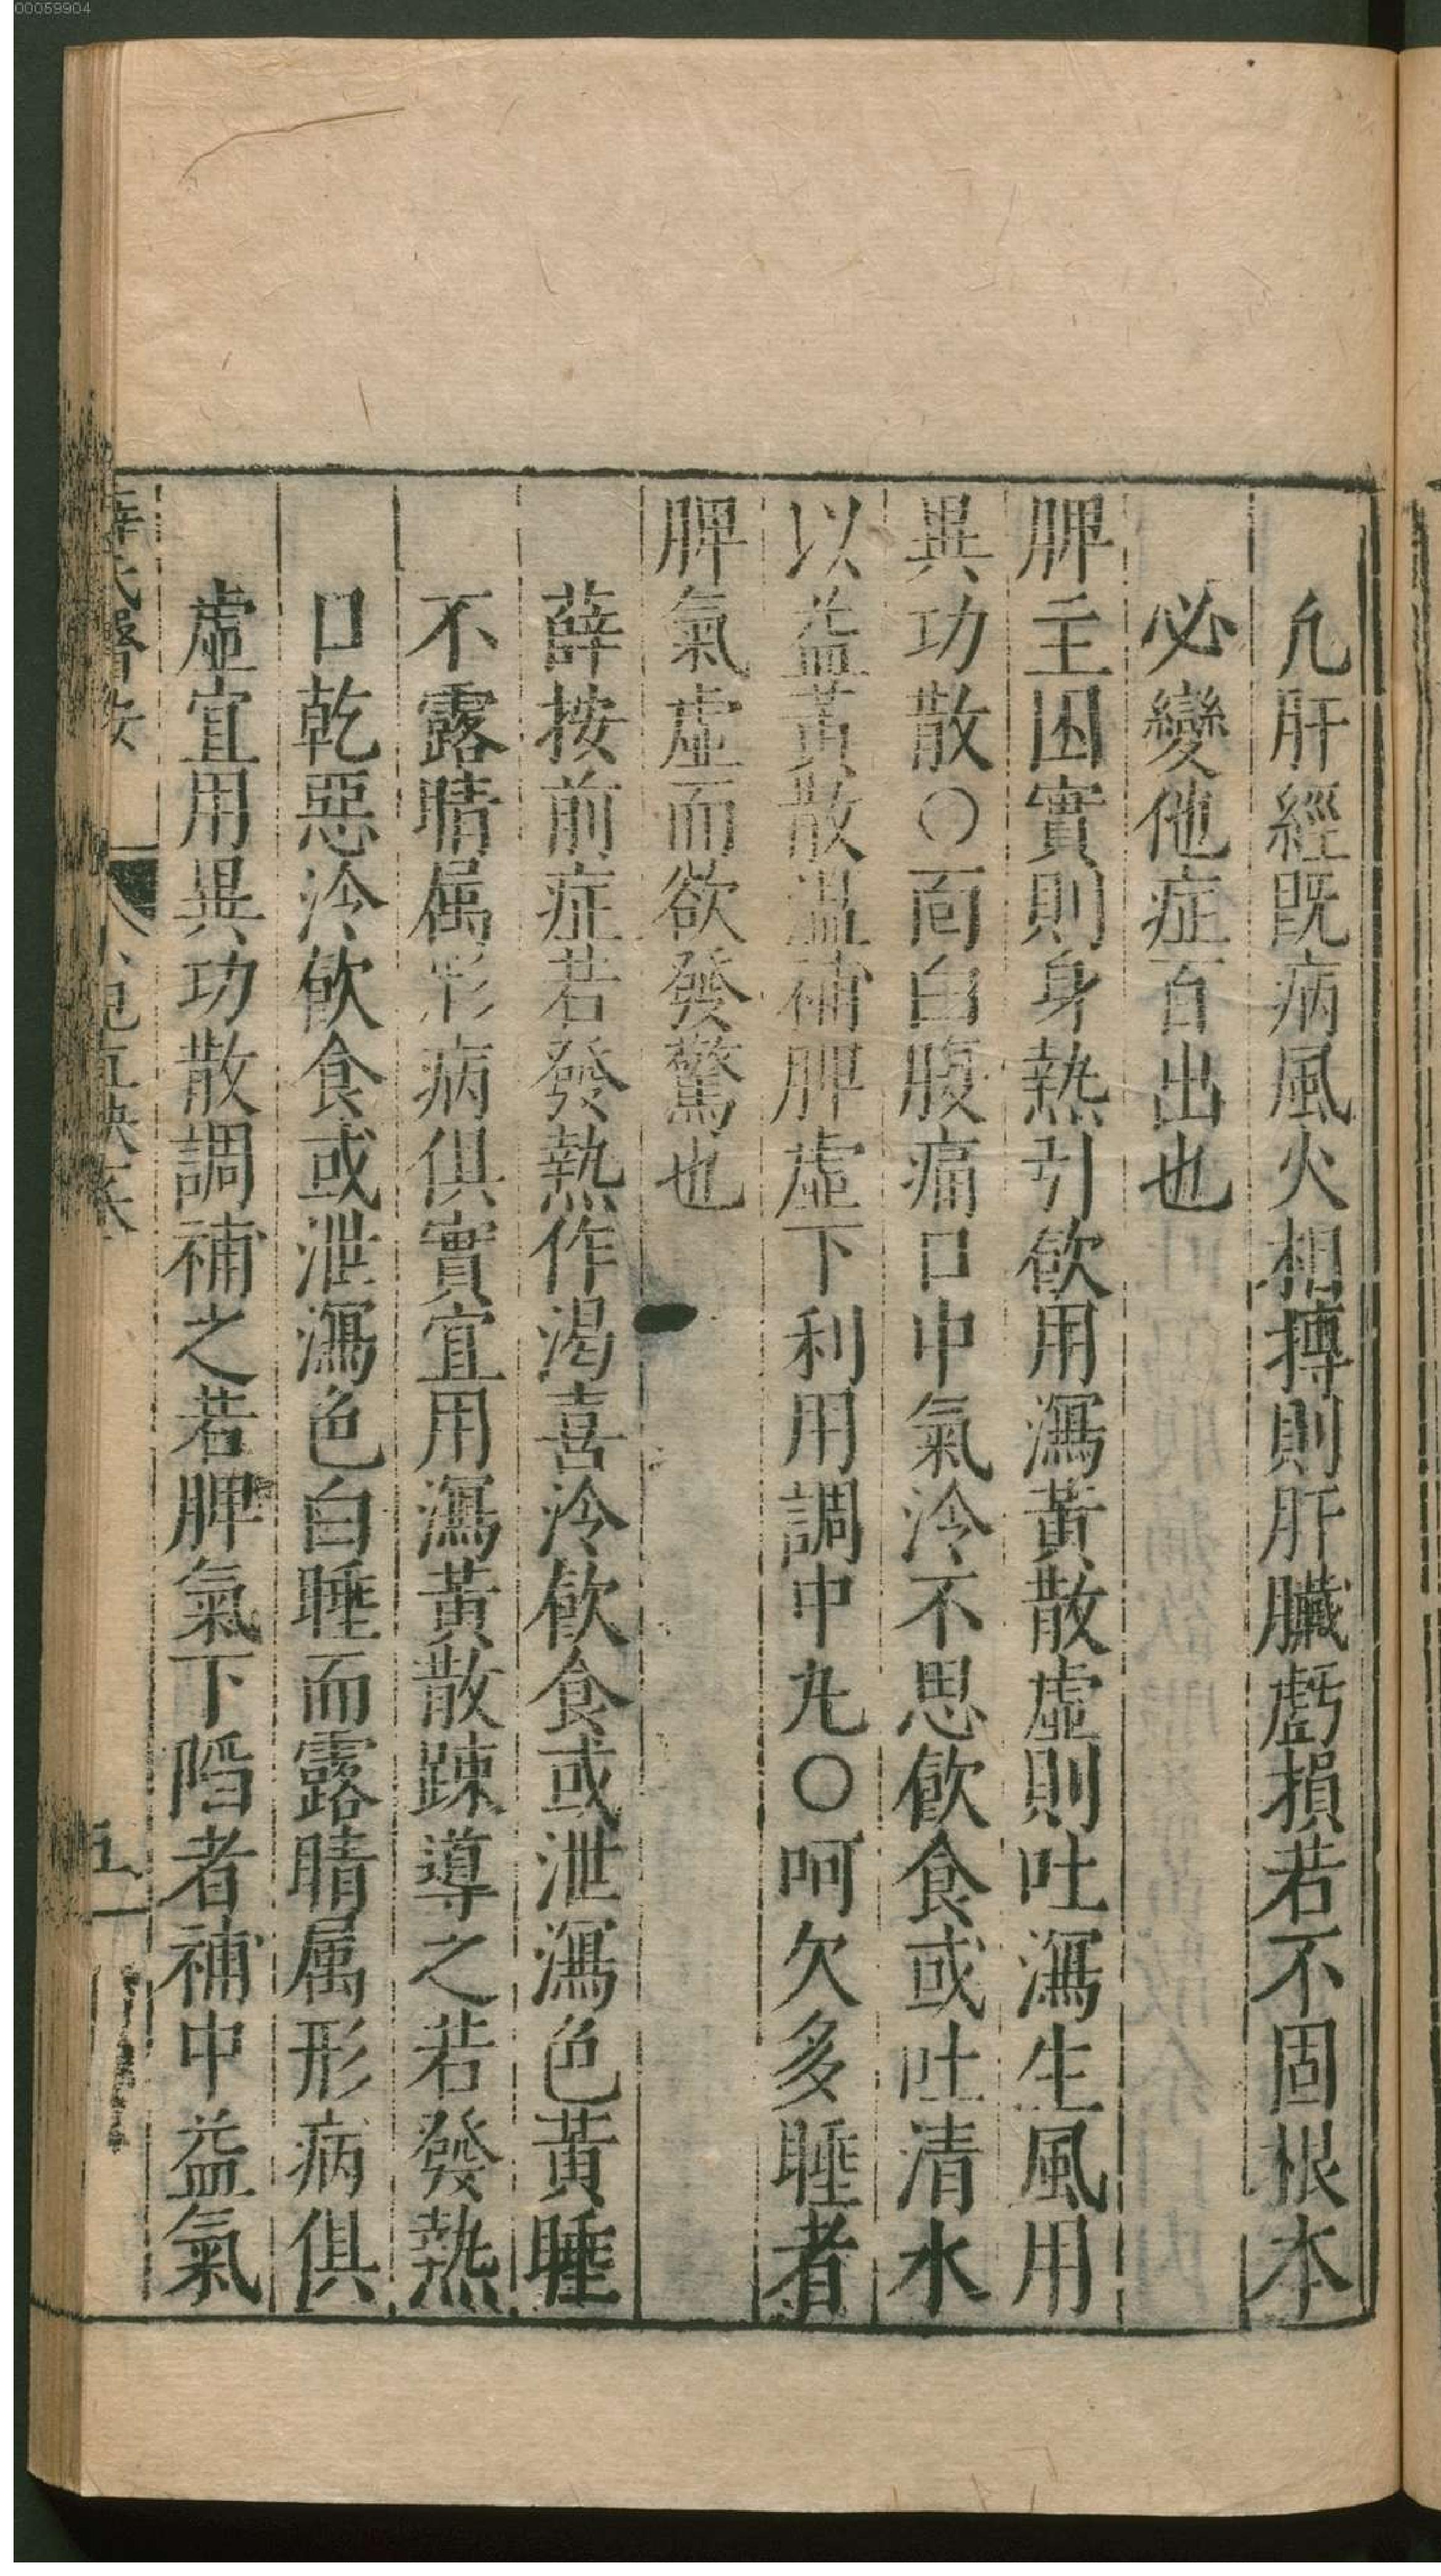 00059904
凢肝經既病風火相搏則肝臟虧損若不固根本
必變他症百出也
脾主困實則身熱引飲用瀉黃散虛則吐瀉生風用
異功散〇面白腹痛口中氣冷不思飲食或吐清水
以益黃散温補脾虛下利用調中丸〇呵欠多睡者
脾氣虛而欲發驚也
薛按前症若發熱作渴喜冷飲食或泄瀉色黃睡
不露睛属形病俱實宜用瀉黃散踈導之若發熱
口乾惡冷飲食或泄瀉色白睡而露睛属形病俱
虛宜用異功散調補之若脾氣下陷者補中益氣